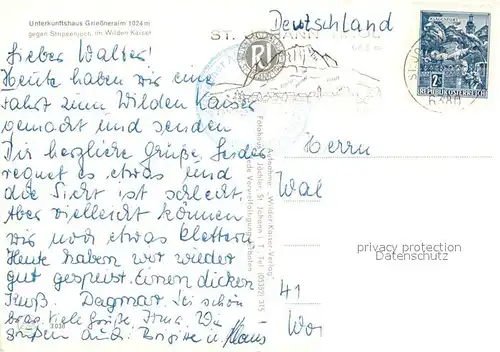 Unterkunftshaus Grießneralm 1024 m
gegen Stripsenjoch, im Wilden Kaiser
Deutschland
ST. JOHANN TIROL
Lieber Walter!
Heute haben wir eine
Fahrt zum Wilden Kaiser
gemacht und senden
Dir herzliche Grüße. Leider
regnet es etwas und
die Sicht ist schlecht.
Aber vielleicht können
wir noch etwas klettern.
Heute haben wir wieder
gut gespeist. Einen dicken
Kuß. Dagmar. Sei schön
brav. Viele Grüße, Irma. Wir
grüßen auch: Brigitte u. Klaus
3038
Aufnahme „Wilder-Kaiser-Verlag"
Fotohaus Jöchler, St. Johann i. T., Tel. (05352) 315
KLAGENFURT
2 S
REPUBLIK ÖSTERREICH
6380
Herrn
Wal
41
Wor
privacy protection
Datenschutz